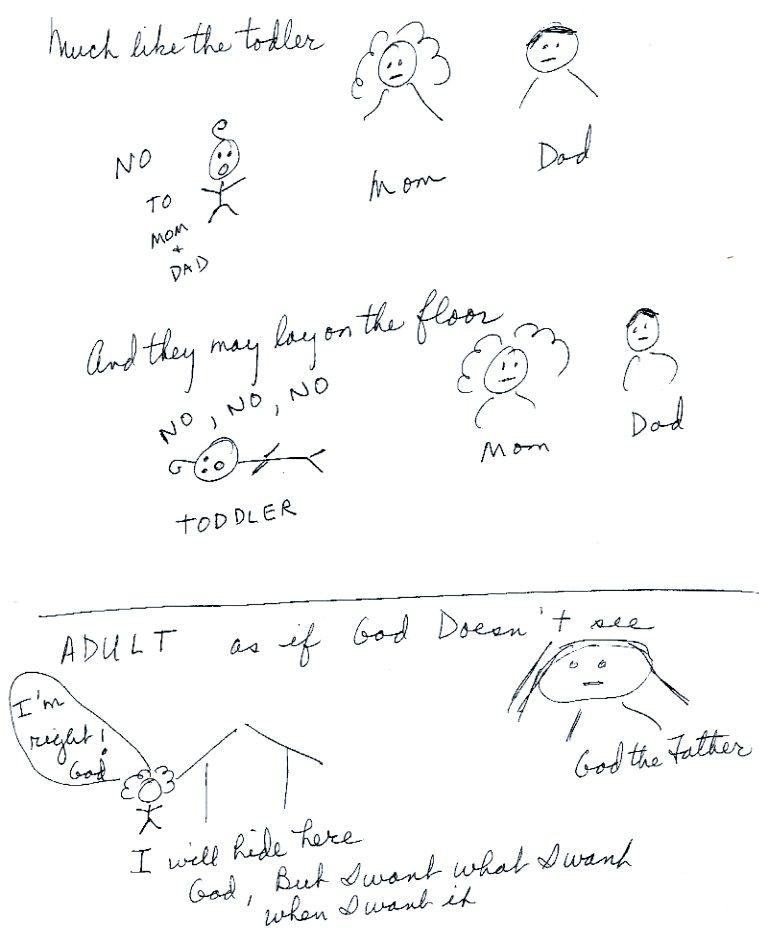 Much like the todler
NO
TO
MOM
+
DAD
Mom
Dad
And they may lay on the floor
NO, NO, NO
TODDLER
Mom
Dad
ADULT as if God Doesn't see
I'm
right!
God
God the Father
I will hide here
God, But I want what I want
when I want it